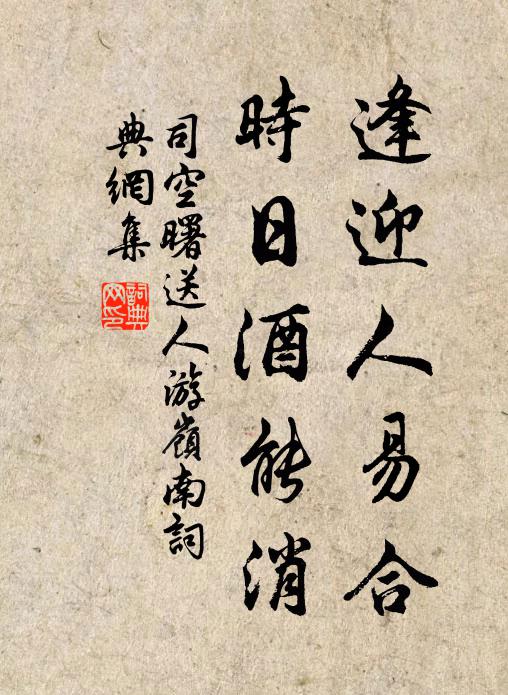 逢迎人易合
時日酒能消
司空曙送人游嶺南詞
典網集
詞典
网印